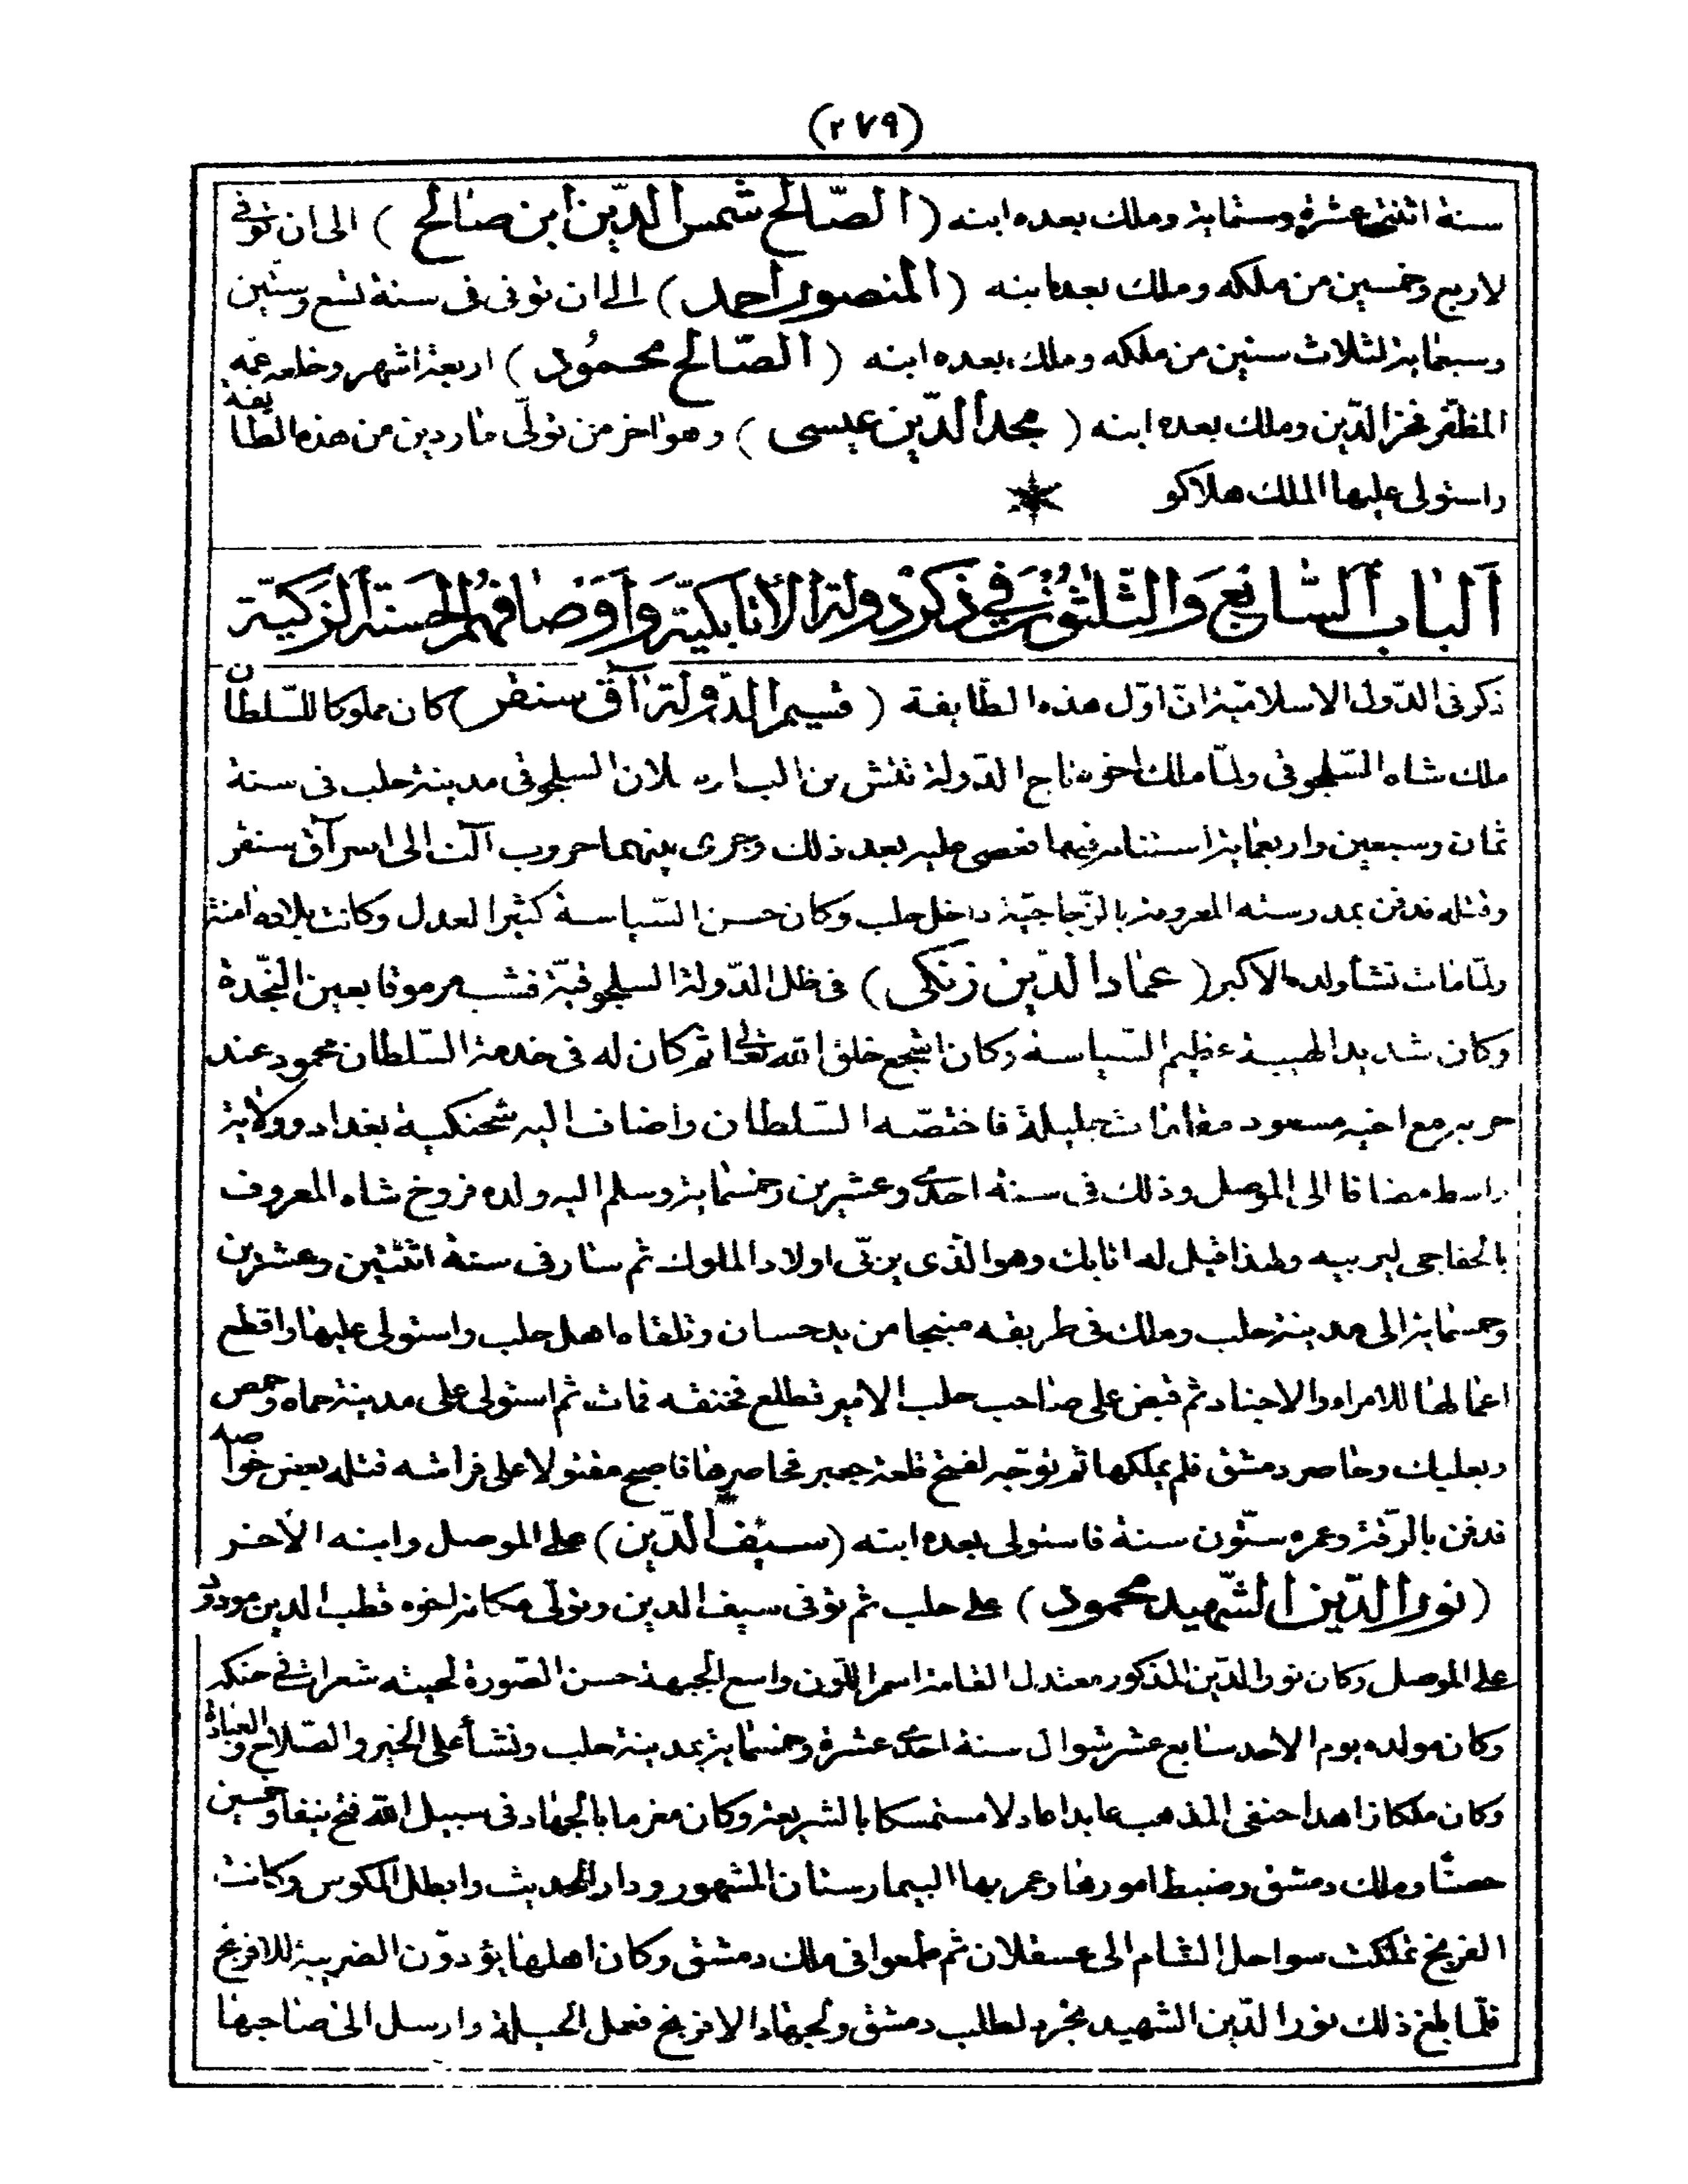 (٢٧٩)
سنة اثنتى عشرة وستماية وملك بعده ابنه (الصّالح شمس الدّين ابن صالح) الى ان توفى
لاربع وخمسين من ملكه وملك بعده ابنه (المنصور احمد) الى ان توفى فى سنة تسع وستين
وسبعماية لثلاث سنين من ملكه وملك بعده ابنه (الصّالح محمود) اربعة اشهر وخلعه عمّه
المظفّر فخر الدّين وملك بعده ابنه (مجد الدّين عيسى) وهو اخر من تولّى ماردين من هذه الطايفة
واستولى عليها الملك هلاكو
الباب السّابع والثّلثون في ذكر دولة الاتابكيّة واوصافهم الحسنة الزكيّة
ذكر فى الدّول الاسلاميّة انّ اوّل هذه الطّايفة (قسيم الدّولة آق سنقر) كان مملوكا للسّلطان
ملك شاه السّلجوقى ولمّا ملك اخوه تاج الدّولة تتش بن الب ارسلان السلجوقى مدينة حلب فى سنة
ثمان وسبعين واربعماية استنابه فيها فعصى عليه بعد ذلك وجرى بينهما حروب آلت الى اسر آق سنقر
وقتله فدفن بمدرسته المعروفة بالزّجاجيّة داخل حلب وكان حسن السّياسة كثير العدل وكانت بلاده امنة
ولمّا مات نشأ ولده الاكبر (عماد الدّين زنكى) فى ظل الدّولة السلجوقيّة فشب مرموقا بعين النّجدة
وكان شديد الهيبة عظيم السّياسة وكان اشجع خلق الله تعالى ثم كان له فى خدمة السّلطان محمود عند
حربه مع اخيه مسعود مقامات جليلة فاختصّه السّلطان واضاف اليه شحنكية بغداد وولاية
واسط مضافا الى الموصل وذلك فى سنة احدى وعشرين وخمسماية وسلم اليه ولده فروخ شاه المعروف
بالخفاجى ليربيه ولهذا قيل له اتابك وهو الذى يربّى اولاد الملوك ثم سار فى سنة اثنتين وعشرين
وخمسماية الى مدينة حلب وملك فى طريقه منبجا من يد حسان وتلقاه اهل حلب واستولى عليها واقطع
اعمالها للامراء والاجناد ثم قبض على صاحب حلب الامير قطلع فخنقه فمات ثم استولى على مدينة حماه وحمص
وبعلبك وحاصر دمشق فلم يملكها ثم توجّه لفتح قلعة جعبر فحاصرها فاصبح مقتولا على فراشه قتله بعض خواصه
فدفن بالرّقة وعمره ستّون سنة فاستولى بعده ابنه (سيف الدّين) على الموصل وابنه الآخر
(نور الدّين الشّهيد محمود) على حلب ثم توفى سيف الدين وتولّى مكانه اخوه قطب الدين مودود
على الموصل وكان نور الدّين المذكور معتدل القامة اسمر اللّون واسع الجبهة حسن الصّورة لحيته شعرات فى حنكه
وكان مولده يوم الاحد سابع عشر شوال سنة احدى عشرة وخمسماية بمدينة حلب ونشأ على الخير والصّلاح والعبادة
وكان ملكا زاهدا حنفى المذهب عابدا عادلا مستمسكا بالشريعة وكان مغرما بالجهاد فى سبيل الله فتح نيفا وخمسين
حصنا وملك دمشق وضبط امورها وعمر بها البيمارستان المشهور ودار الحديث وابطل المكوس وكانت
الفرنج تملكت سواحل الشام الى عسقلان ثم طمعوا فى ملك دمشق وكان اهلها يؤدّون الضريبة للافرنج
فلمّا بلغ ذلك نور الدّين الشهيد تجرد لطلب دمشق ولجهاد الافرنج فعمل الحيلة وارسل الى صاحبها